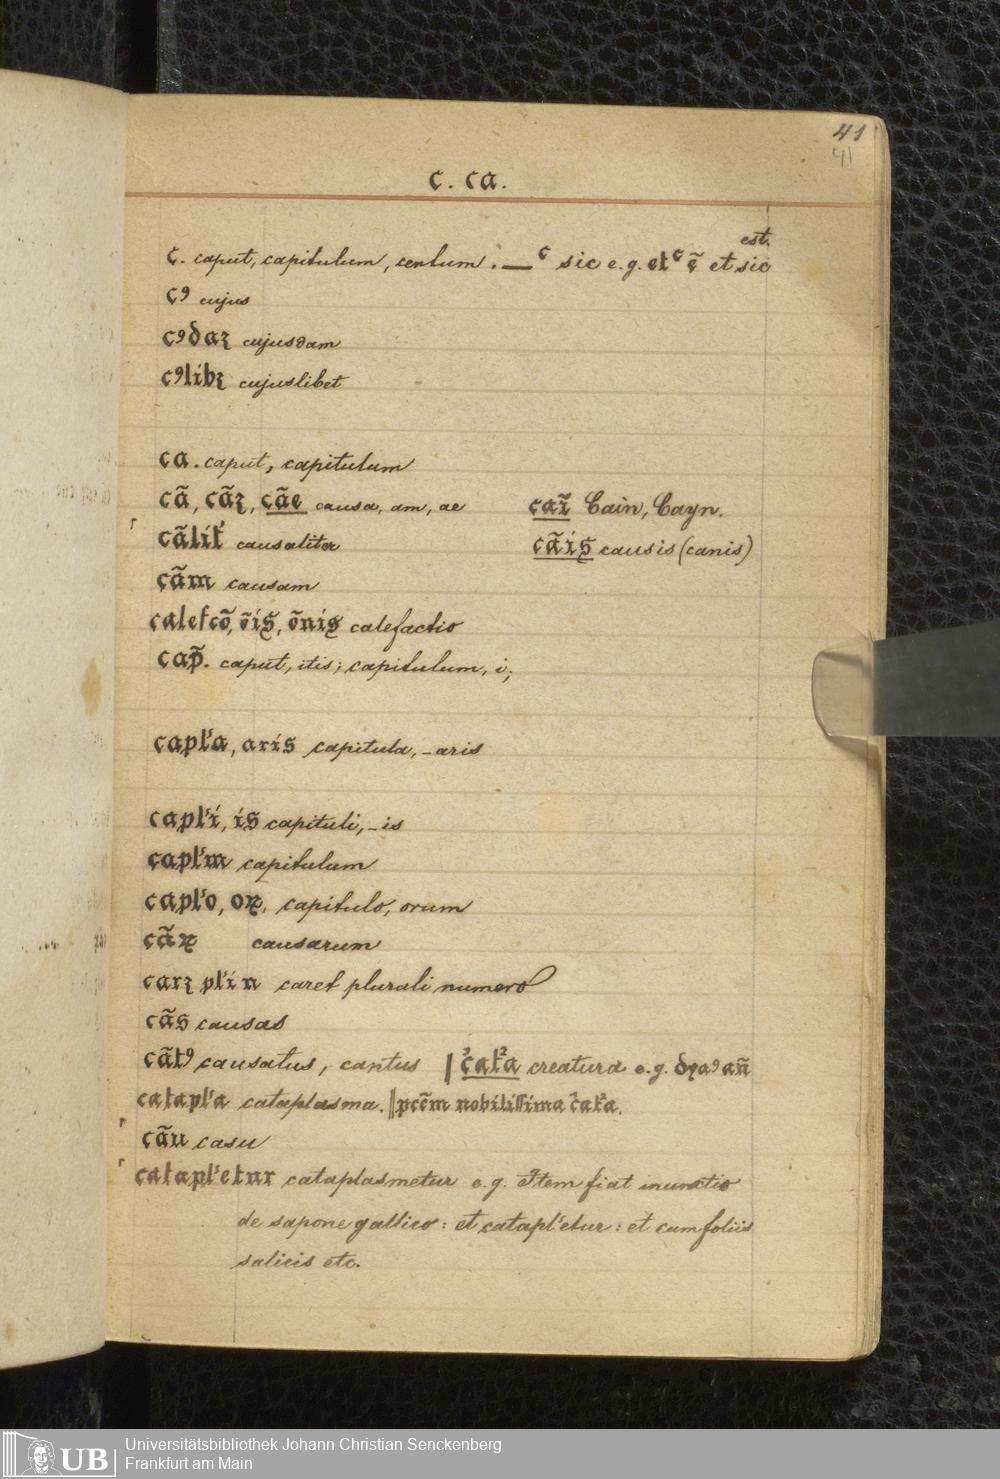 41
41
c. ca.
est.
c. caput, capitulum, centum. — ᶜ sic e.g. etᶜ c̃ et sic
cꝯ cujus
cꝯdaꝫ cujusdam
cꝯlibꝫ cujuslibet
ca. caput, capitulum
cã, cãꝫ, cãe causa, am, ae caĩ Cain, Cayn.
cãlit́ causaliter cãis causis (canis)
cãm causam
calefcõ, õis, õnis calefactio
cap̃. caput, itis; capitulum, i;
capl'a, aris capitula, -aris
capl'i, is capituli, -is
capl'm capitulum
capl'o, oꝝ, capitulo, orum
cãꝝ causarum
carꝫ pl'i n caret plurali numero
cãs causas
cãtꝯ causatus, cantus | c̾at²a creatura e.g. dyaꝯ añ
catapl'a cataplasma. || pcẽm nobilissima c̾at²a.
cãu casu
catapl'etur cataplasmetur e.g. Item fiat inunctio
de sapone gallico: et catapl'etur: et cum foliis
salicis etc.
UB
Universitätsbibliothek Johann Christian Senckenberg
Frankfurt am Main